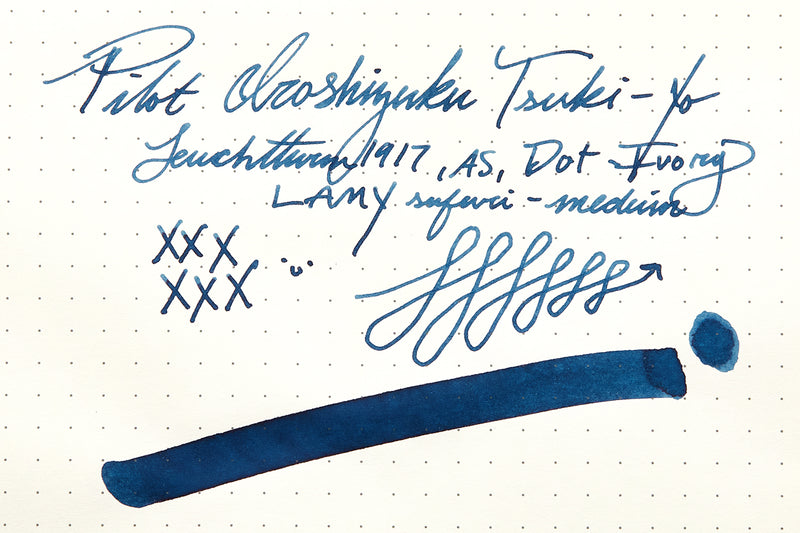 Pilot Iroshizuku Tsuki-yo
Leuchtturm1917, A5, Dot-Ivory
LAMY safari - medium
XXX
XXX